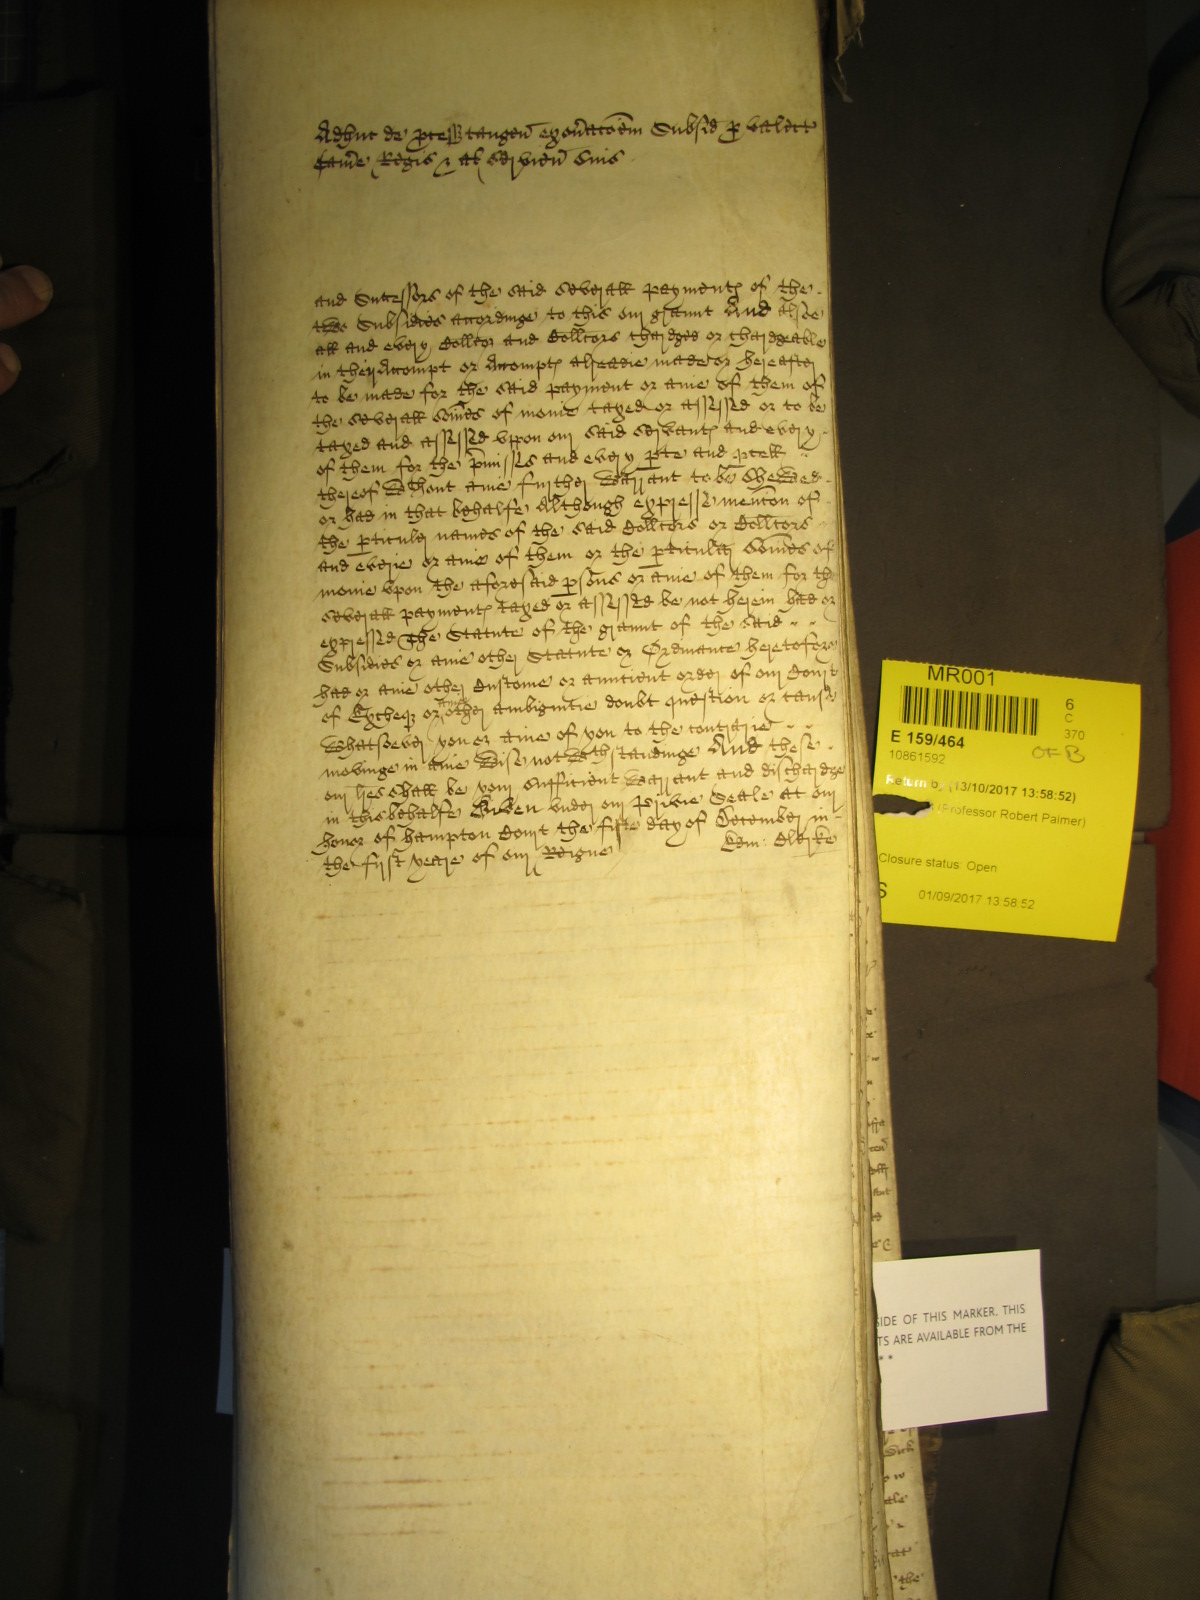 Adhuc de pcept tangen exoneracoem Subsid p valett
Camere Regis & al servien suis
and Successors of the said severall payments of the
two Subsidies accordinge to this our graunt And alsoe
all and every Collcor and Collcors chardged or chardgeable
in their Accompt or Accompts alreadie made or hereafter
to be made for the said payment or anie of them of
the severall somes of monie taxed or assessed or to be
taxed and assessed vpon our said servants and every
of them for the pmisses and every pte and pcell
thereof without anie further warrant to be shewed
or had in that behalfe Although expresse mencon of
the pticuler names of the said Collcors or Collcors
and everie or anie of them or the pticuler Somes of
monie vpon the aforesaid psons or anie of them for the
severall payments taxed or assessed be not herein had or
expressed The Statute of the graunt of the said
Subsidies or anie other Statute or Ordinance heretofore
had or anie other Custome or auncient order of our Court
of Excheqr or anie other ambiguitie doubt question or cause
whatsoever you or anie of you to the contrarie
movinge in anie wise notwithstandinge And these
our lres shall be your sufficient warrant and dischardge
in this behalfe Given vnder our Privie Seale at our
honor of hampton Court the first day of December in
the first yeare of our Reigne Edm: Clerke
MR001
6
C
370
E 159/464
OF B
10861592
Return by (13/10/2017 13:58:52)
(Professor Robert Palmer)
Closure status: Open
S
01/09/2017 13:58:52
SIDE OF THIS MARKER. THIS
TS ARE AVAILABLE FROM THE
**